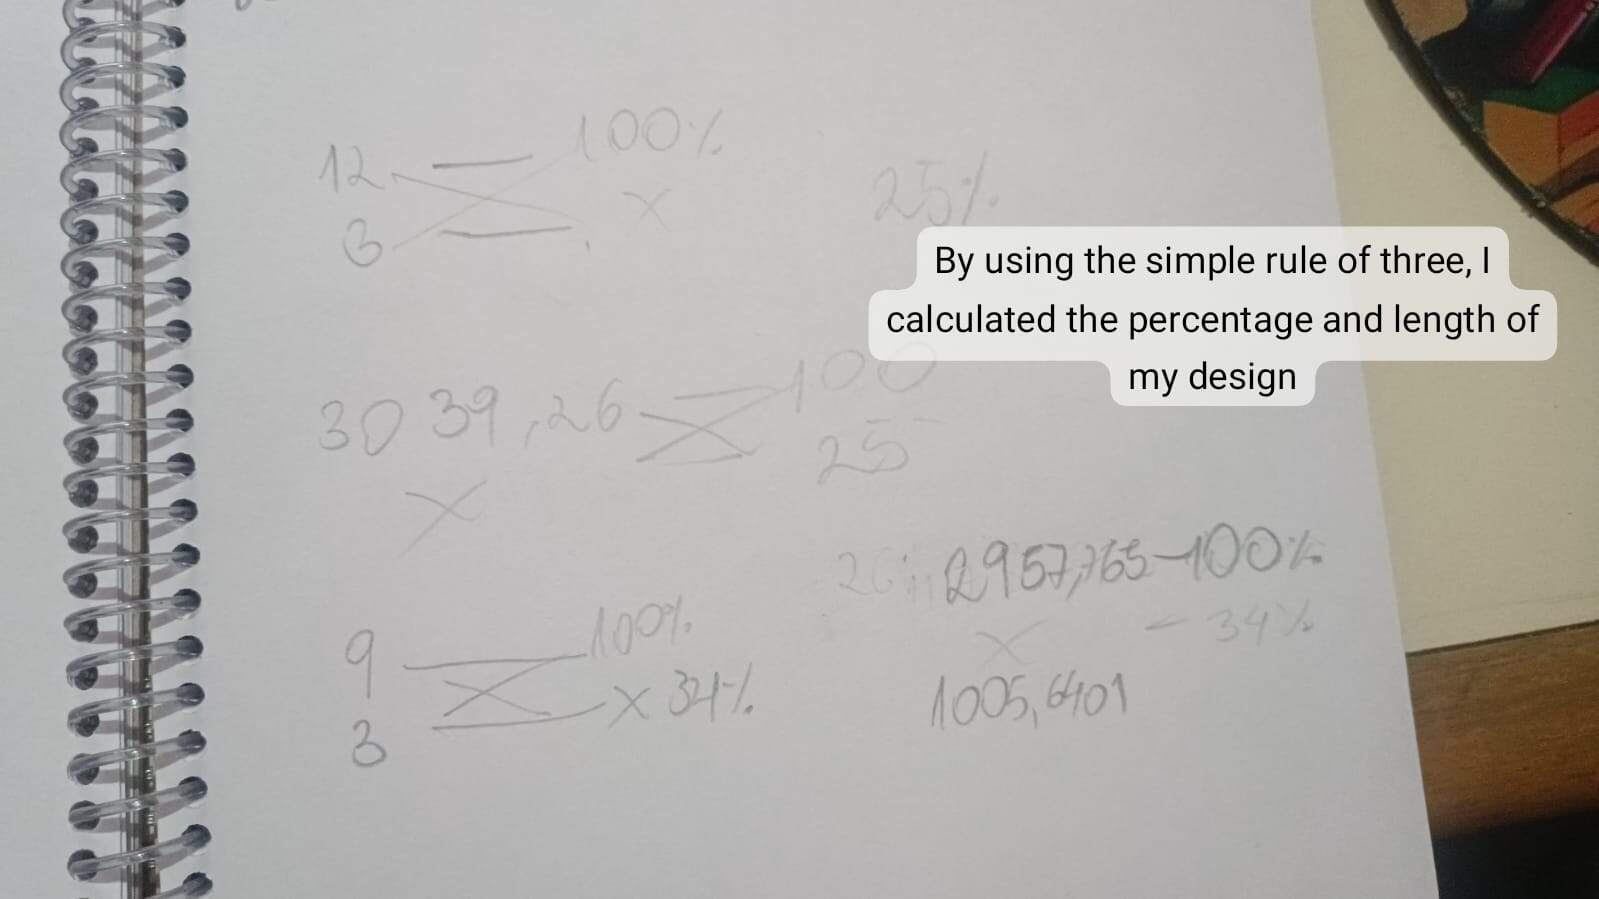 12 — 100%
3 — x
25%
By using the simple rule of three, I
calculated the percentage and length of
my design
3039,26 100
x 25
9 — 100%
3 — x 34%
2957,765 — 100%
x — 34%
1005,6401